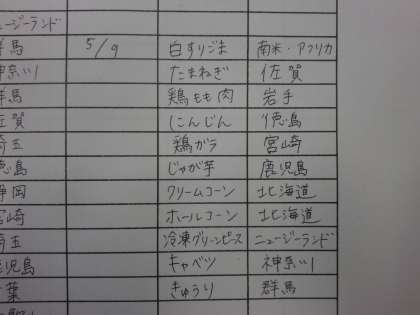 ニュージーランド
群馬 5/9 白すりごま 南米・アフリカ
神奈川 たまねぎ 佐賀
群馬 鶏もも肉 岩手
佐賀 にんじん 徳島
埼玉 鶏ガラ 宮崎
徳島 じゃが芋 鹿児島
静岡 クリームコーン 北海道
宮崎 ホールコーン 北海道
埼玉 冷凍グリーンピース ニュージーランド
鹿児島 キャベツ 神奈川
千葉 きゅうり 群馬